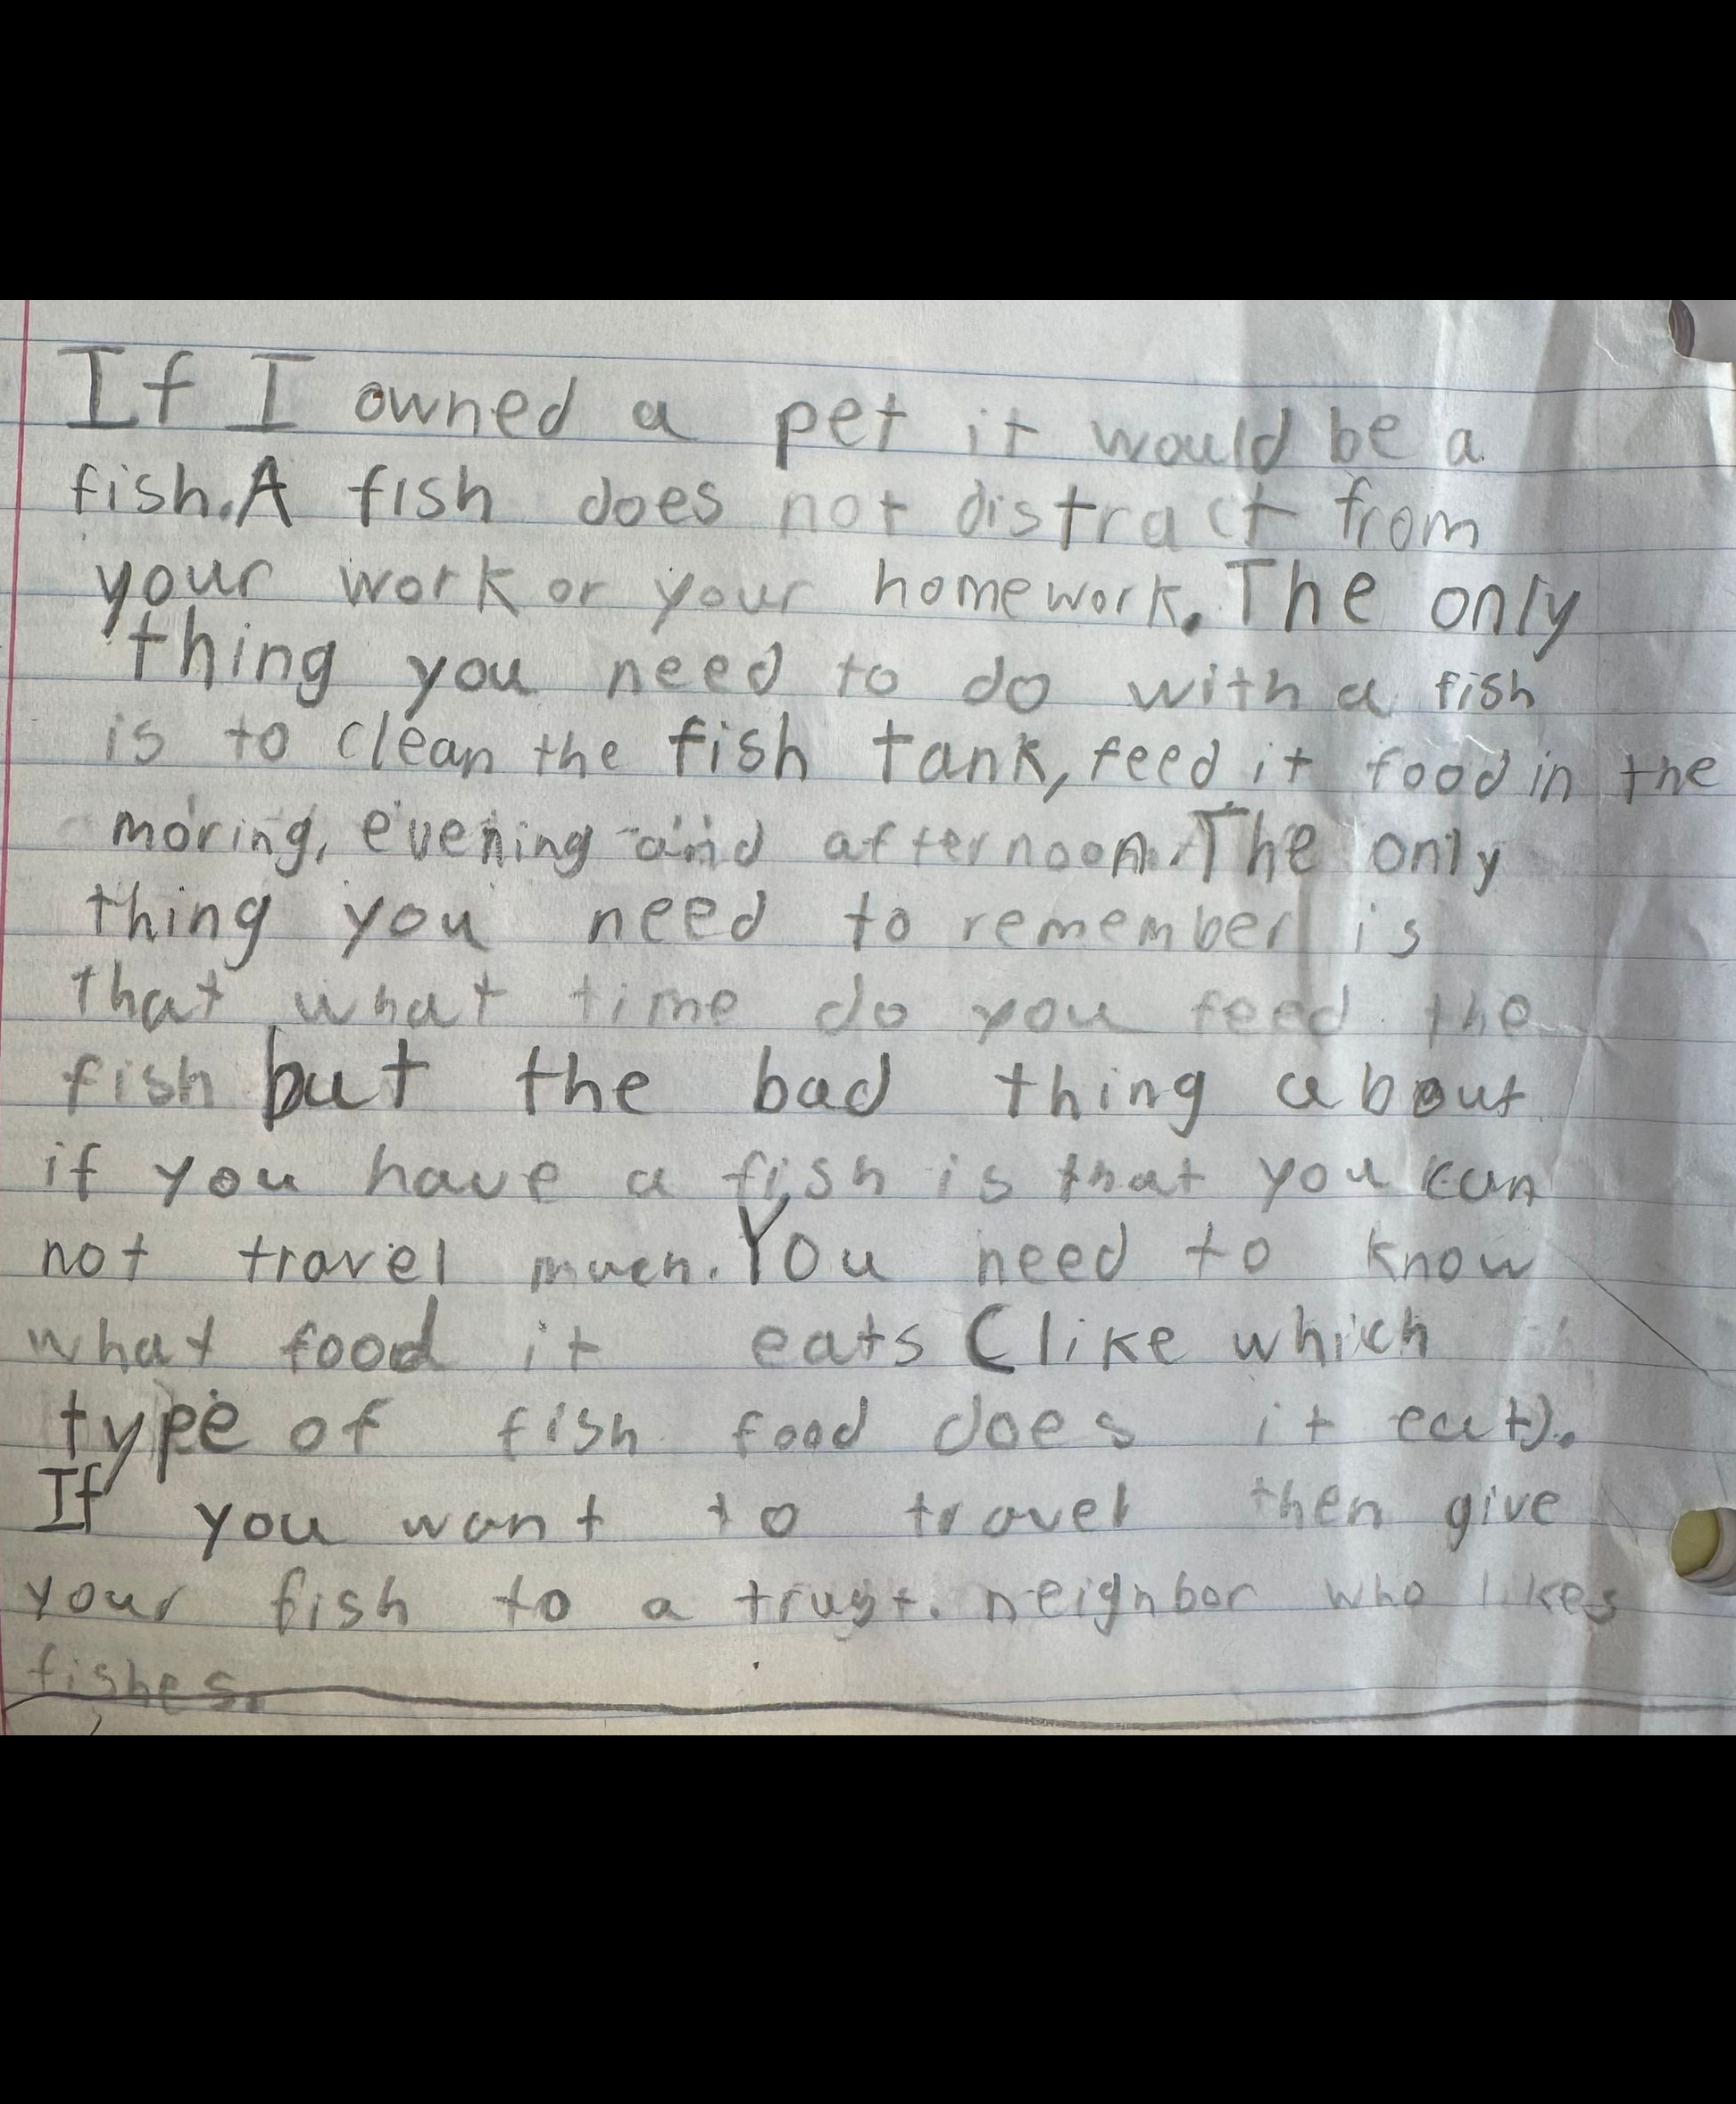 If I owned a pet it would be a
fish. A fish does not distract from
your work or your homework. The only
thing you need to do with a fish
is to clean the fish tank, feed it food in the
moring, evening and afternoon. The only
thing you need to remember is
that what time do you feed the
fish but the bad thing about
if you have a fish is that you can
not travel much. You need to know
what food it eats (like which
type of fish food does it eat).
If you want to travel then give
your fish to a trust. neighbor who likes
fishes.